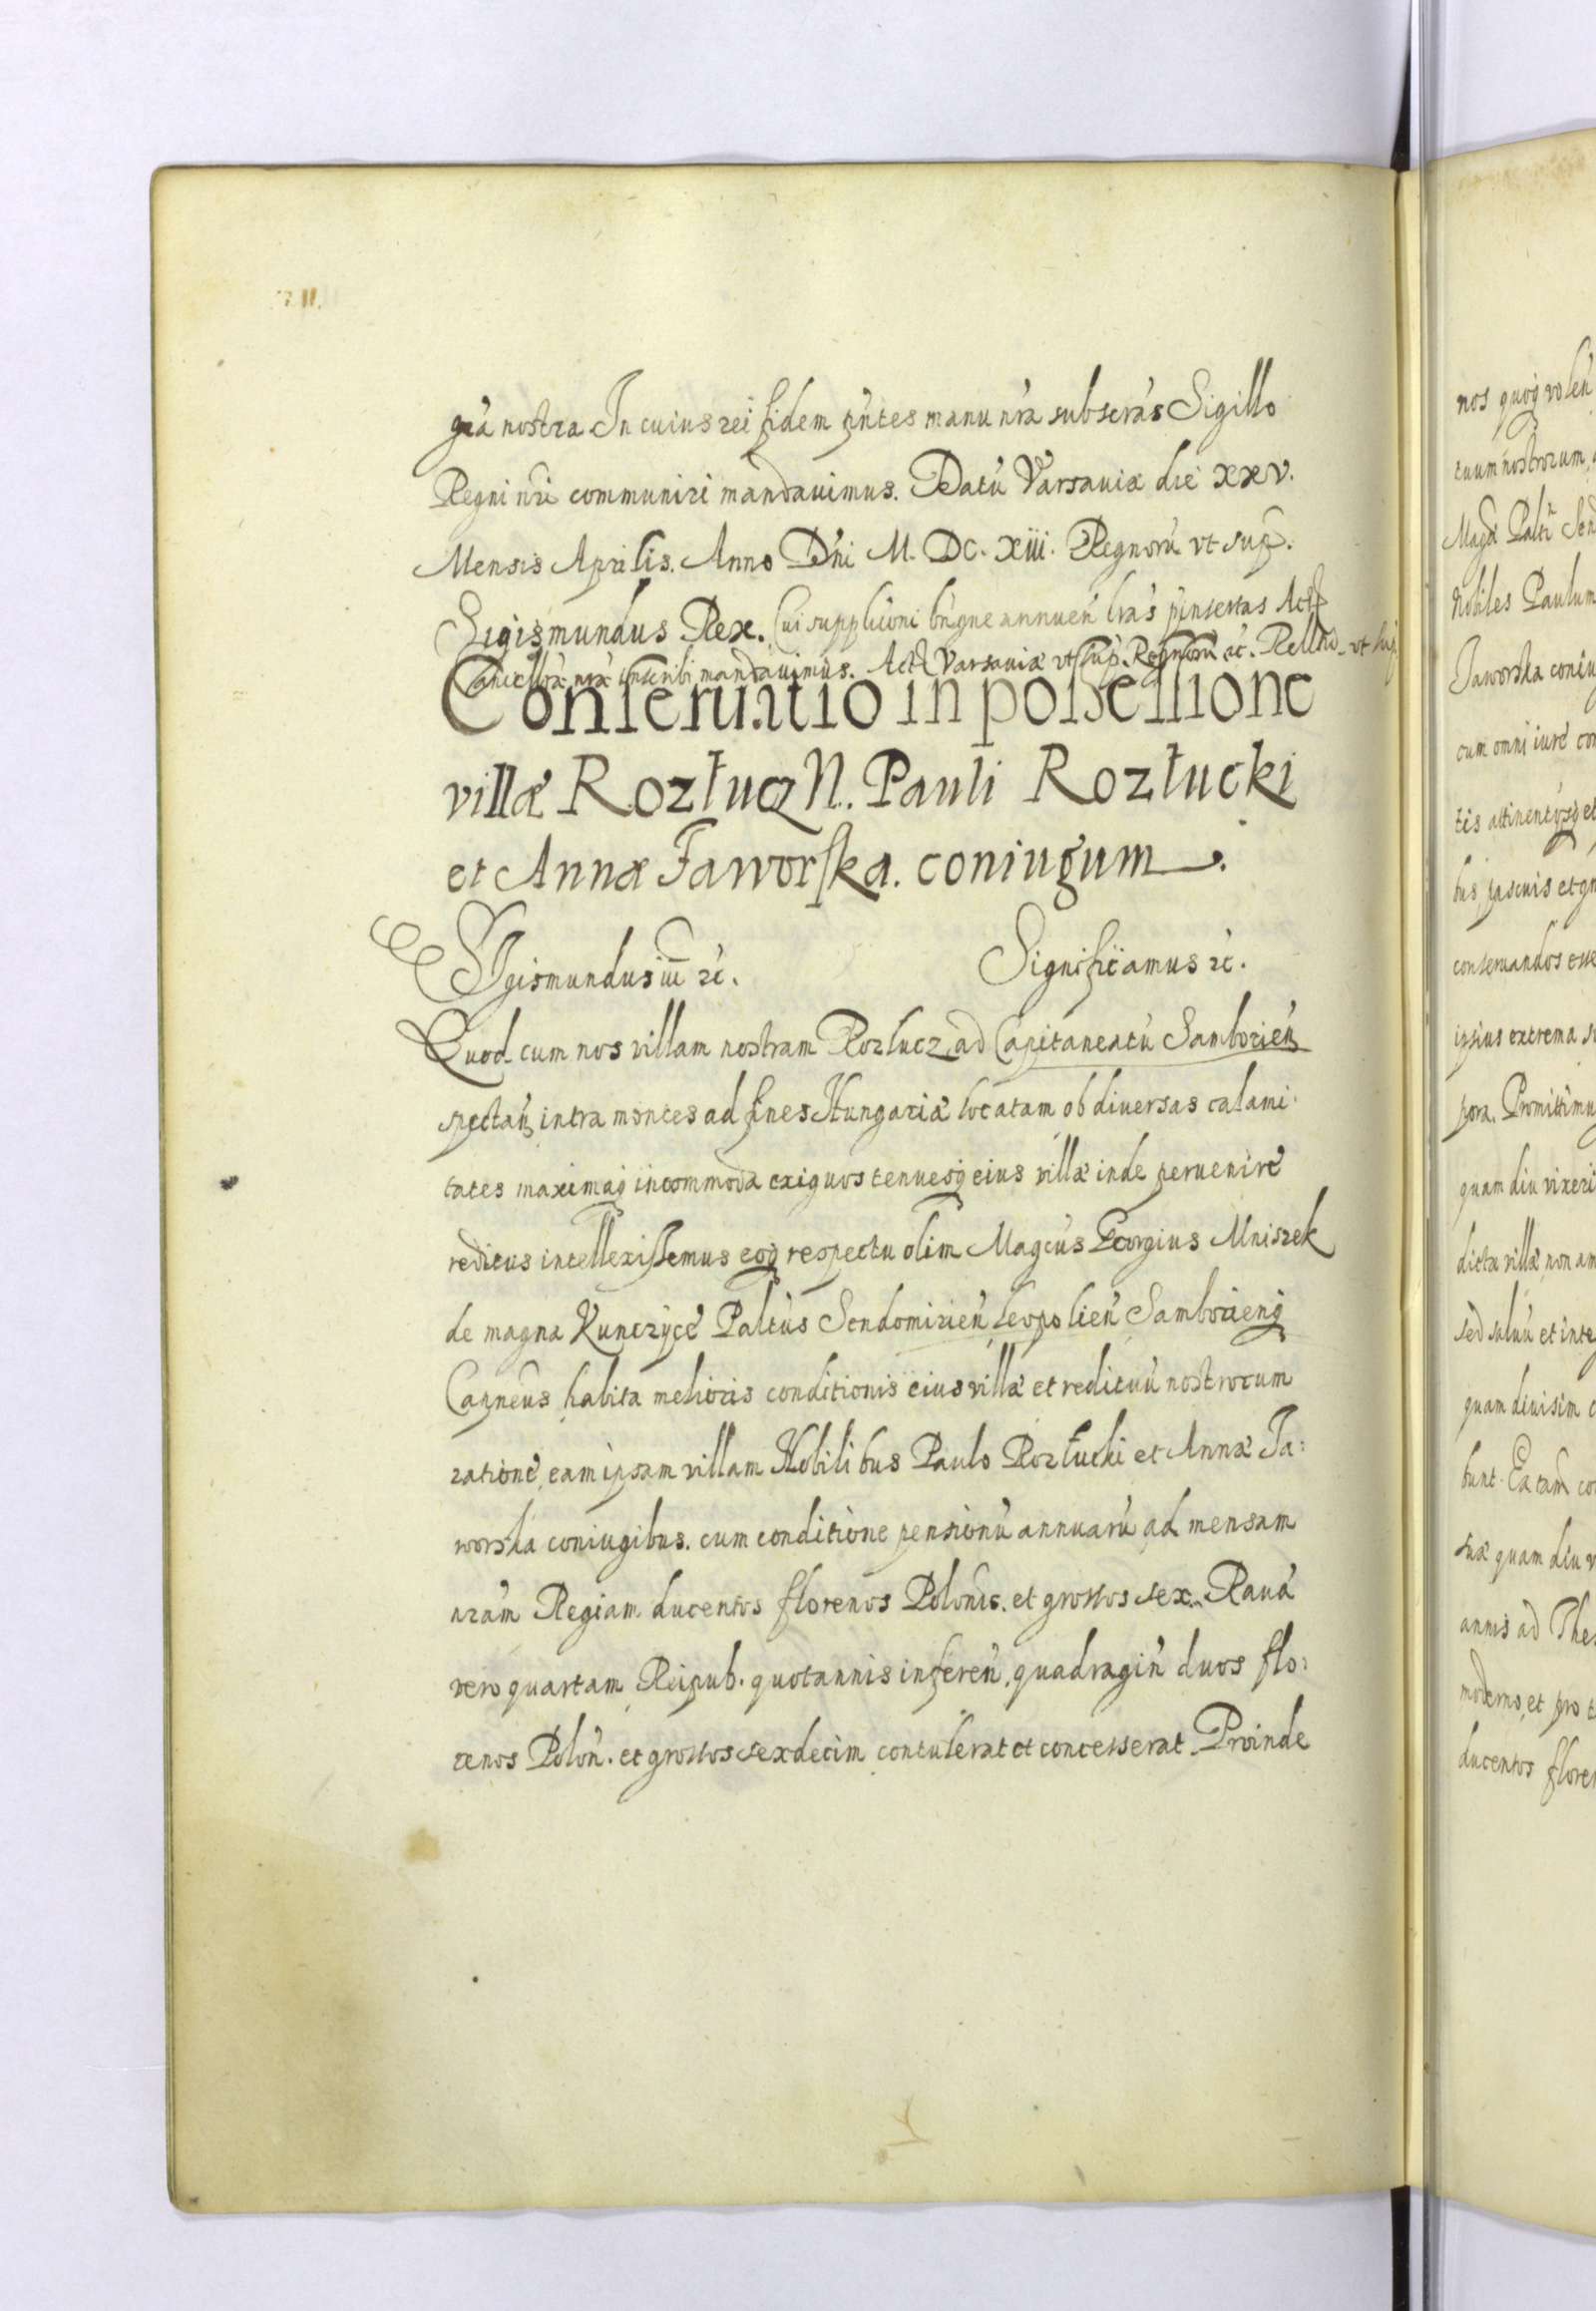 gra nostra In cuius rei fidem pñtes manu nra subscrãs Sigillo
Regni nri communiri mandauimus. Datũ Varsauiæ die XXV.
Mensis Aprilis. Anno Dñi M. DC. XIII. Regnorũ vt sup.
Sigismundus Rex. Cui supplicõni bñgne annuen lras pinsertas Actis
Cancellræ nræ inscribi mandauimus. Act Varsauiæ vt sup. Regnorũ ꝛc. Rellõ vt sup
Conseruatio in possessione
villæ Rozłucz N. Pauli Rozłucki
et Annæ Jaworska. coniugum.
Sigismundus iii ꝛc. Significamus ꝛc.
Quod cum nos villam nostram Rozlucz ad Capitaneatũ Samborien
spectañ intra montes ad fines Hungariæ locatam ob diuersas calami
tates maximaq incommoda exiguos tenuesq eius villæ inde peruenire
reditus intellexissemus eoq respectu olim Magcus Georgius Mniszek
de magna Kunczyce Paltus Sendomirien Leopolien Samborienq
Capneus habita melioris conditionis eius villæ et redituũ nostrorum
ratione, eam ipsam villam Nobilibus Paulo Rozłucki et Annæ Ja:
worska coniugibus. cum conditione pensionũ annuarũ ad mensam
nram Regiam ducentos florenos Polonic. et grossos sex. Raua
vero quartam Reipub. quotannis inferen, quadragin duos flo:
renos Polon. et grossos sexdecim contulerat et concesserat Proinde
nos quoq volen
tuum nostrorum
Magd Palt Send
Nobiles Paulum
Jaworska coniu
cum omni iure con
tis attinentysq et
bus, pascuis et
conseruandos esse
ipsius extrema
pora. Promittimus
quam diu vixeri
dicta villa non am
sed saluũ et inte
quam diuisim
bunt. Ea tam co
suæ quam diu v
annis ad Thes
moderno, et pro
ducentos floren